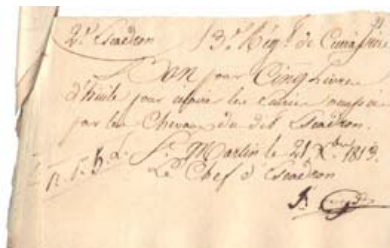 2e Escadron 13e Régt de Cuirassiers
Bon pour Cinq Livres
d'huile pour les
par les Chevaux du dit Escadron.
St Martin le 21 Xbre 1813.
Le Chef d'Escadron